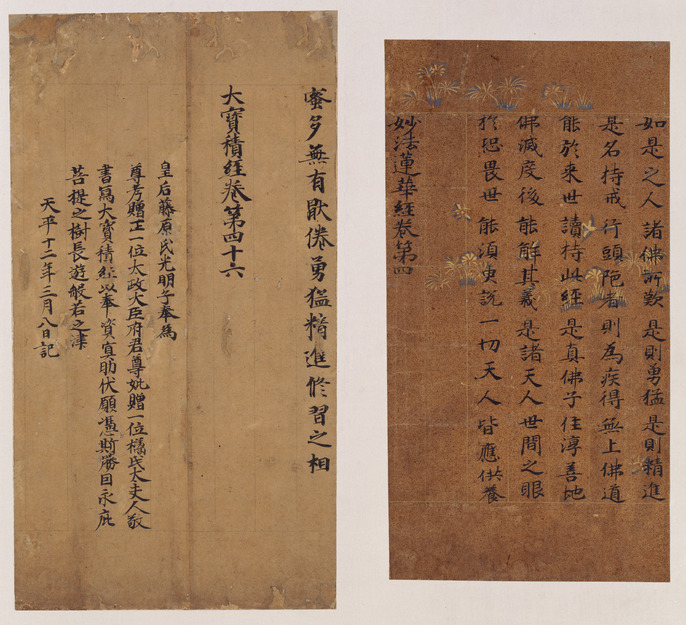 如是之人 諸佛所歎 是則勇猛 是則精進
是名持戒 行頭陀者 則為疾得 無上佛道
能於來世 讀持此經 是真佛子 住淳善地
佛滅度後 能解其義 是諸天人 世間之眼
於恐畏世 能須臾說 一切天人 皆應供養
妙法蓮華經卷第四
蜜多無有猒倦勇猛精進修習之相
大寶積經卷第四十六
皇后藤原氏光明子奉為
尊考贈正一位太政大臣府君尊妣贈一位橘氏太夫人敬
書寫大寶積經以奉資冥助伏願憑斯勝因永庇
菩提之樹長遊般若之津
天平十二年三月八日記